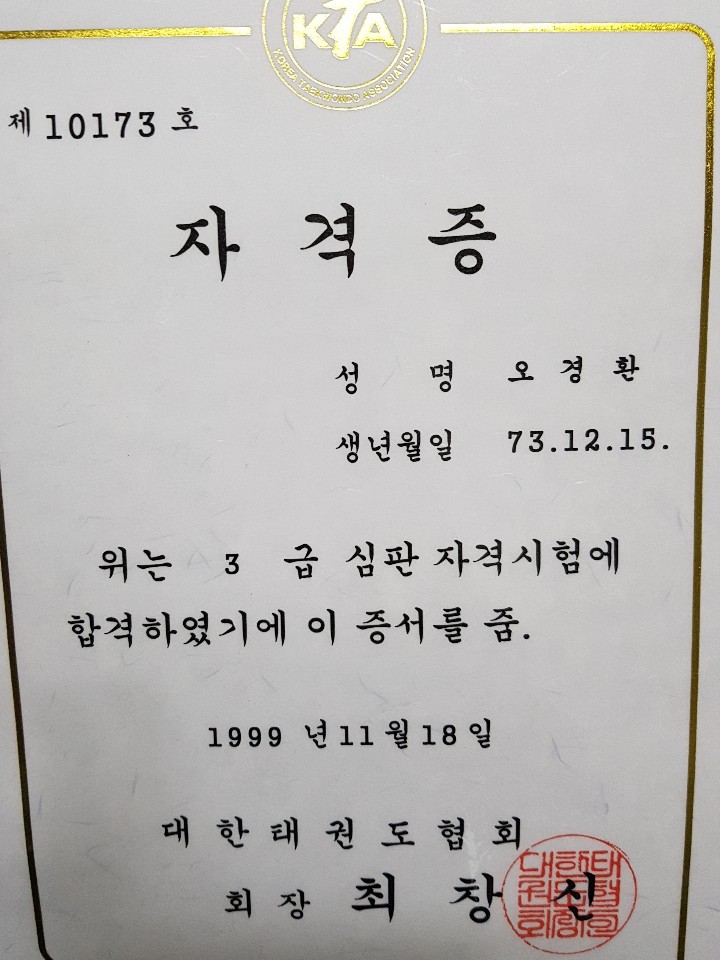 KTA
KOREA TAEKWONDO ASSOCIATION
제 10173 호
자 격 증
성 명 오 경 환
생년월일 73.12.15.
위는 3 급 심판 자격시험에
합격하였기에 이 증서를 줌.
1999 년 11 월 18 일
대 한 태 권 도 협 회
회 장 최 창 신